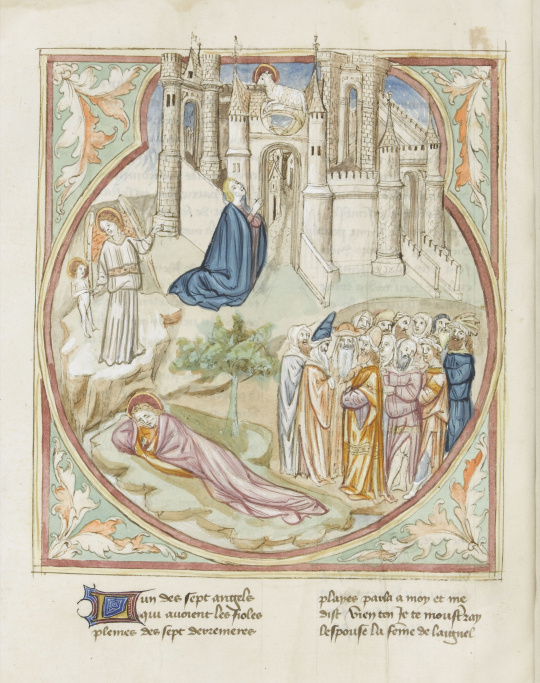 Lun des sept angels
qui avoient les fioles
plemes des sept derremeres
playes parla a moy et me
dist vien ten Je te moustray
lespouse la feme de laignel